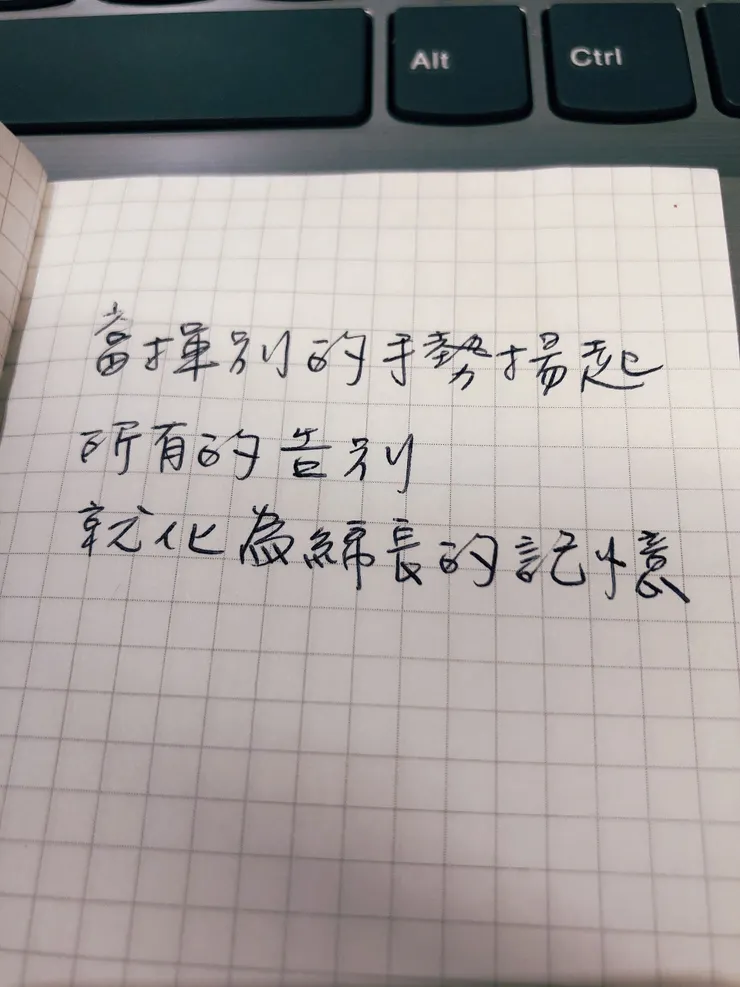 Alt
Ctrl
當揮別的手勢揚起
所有的告別
就化為綿長的記憶